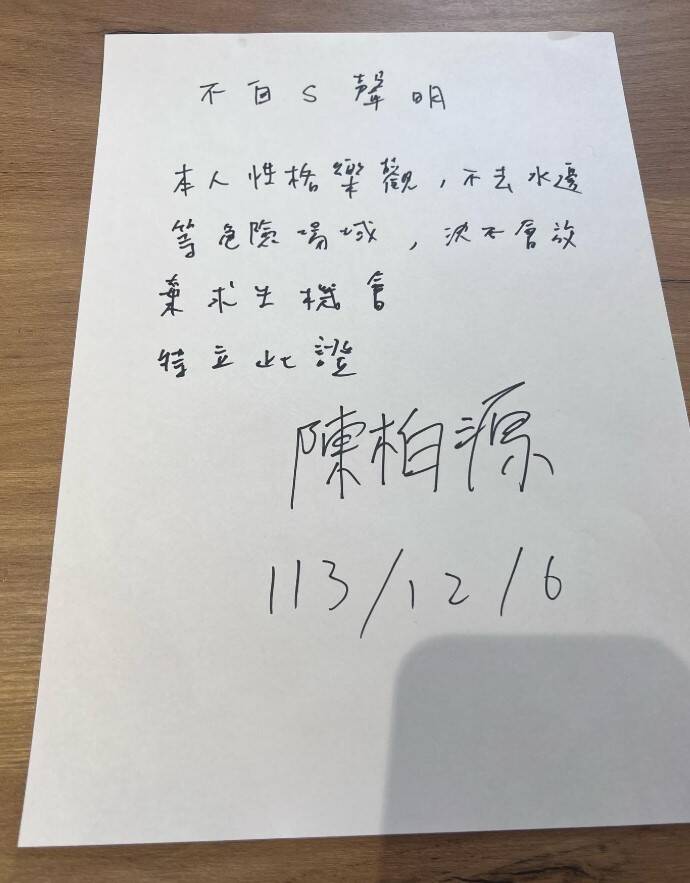 不自S聲明
本人性格樂觀，不去水邊
等危險場域，決不會放
棄求生機會
特立此證
陳柏源
113/12/6